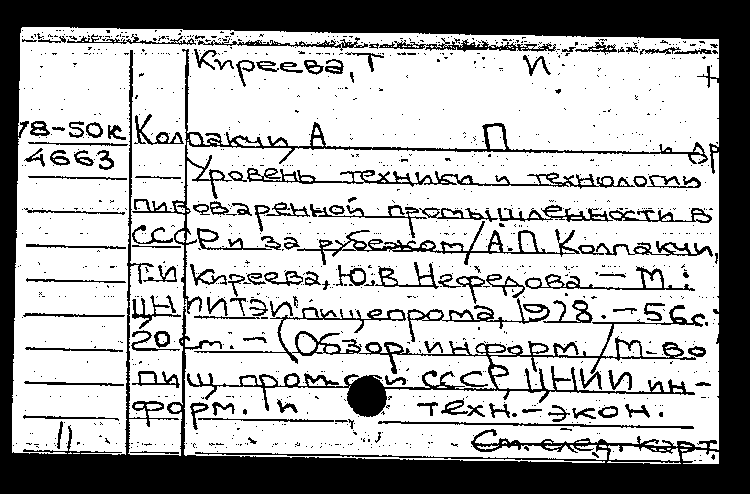 Киреева, Т И +
78-50к Колпакчи, А П и др
4663 Уровень техники и технологии
пивоваренной промышленности в
СССР и за рубежом / А.П. Колпакчи,
Т.И. Киреева, Ю.В Нефедова. — М.:
ЦНИИТЭИпищепрома, 1978. — 56с.
20 см. — (Обзор. информ. / М-во
пищ. пром-сти СССР, ЦНИИ ин-
форм. и техн.-экон.
11 См. след. карт.